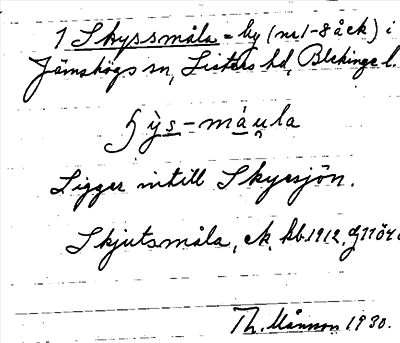 1 Skyssmåla = by (nr 1-8 åck) i
Jämshögs sn, Listers hd, Blekinge l.
ṣy̆s-måu̯la
Ligger intill Skyesjön.
Skjutsmåla, ek. kb 1912.
Th. Månsson 1930.